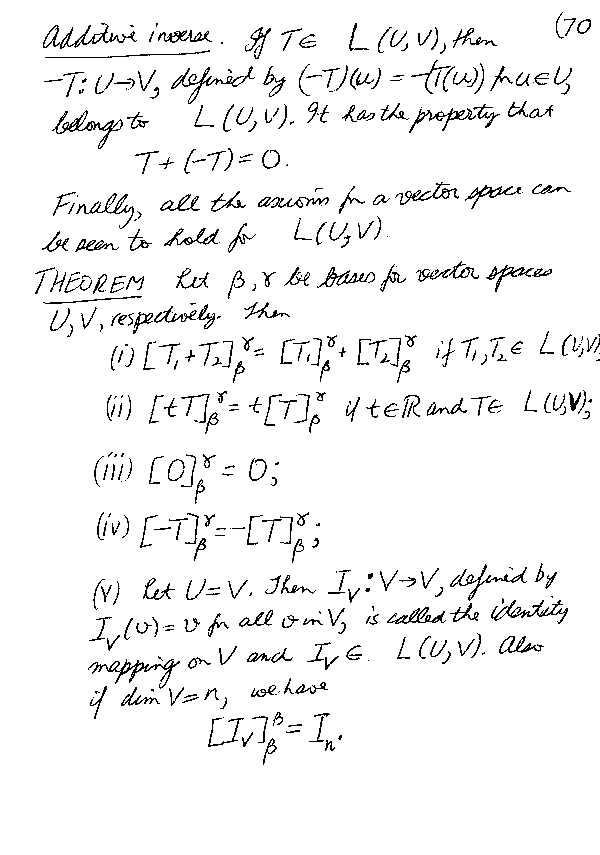 Additive inverse. If T ∈ L(U,V), then (70
-T: U→V, defined by (-T)(u) = -(T(u)) for u ∈ U,
belongs to L(U,V). It has the property that
T + (-T) = 0.
Finally, all the axioms for a vector space can
be seen to hold for L(U,V).
THEOREM Let β, γ be bases for vector spaces
U, V, respectively. Then
(i) [T₁+T₂]_β^γ = [T₁]_β^γ + [T₂]_β^γ if T₁,T₂ ∈ L(U,V)
(ii) [tT]_β^γ = t[T]_β^γ if t ∈ ℝ and T ∈ L(U,V);
(iii) [0]_β^γ = 0;
(iv) [-T]_β^γ = -[T]_β^γ;
(v) Let U = V. Then I_V: V→V, defined by
I_V(v) = v for all v in V, is called the identity
mapping on V and I_V ∈ L(U,V). Also
if dim V = n, we have
[I_V]_β^β = I_n.